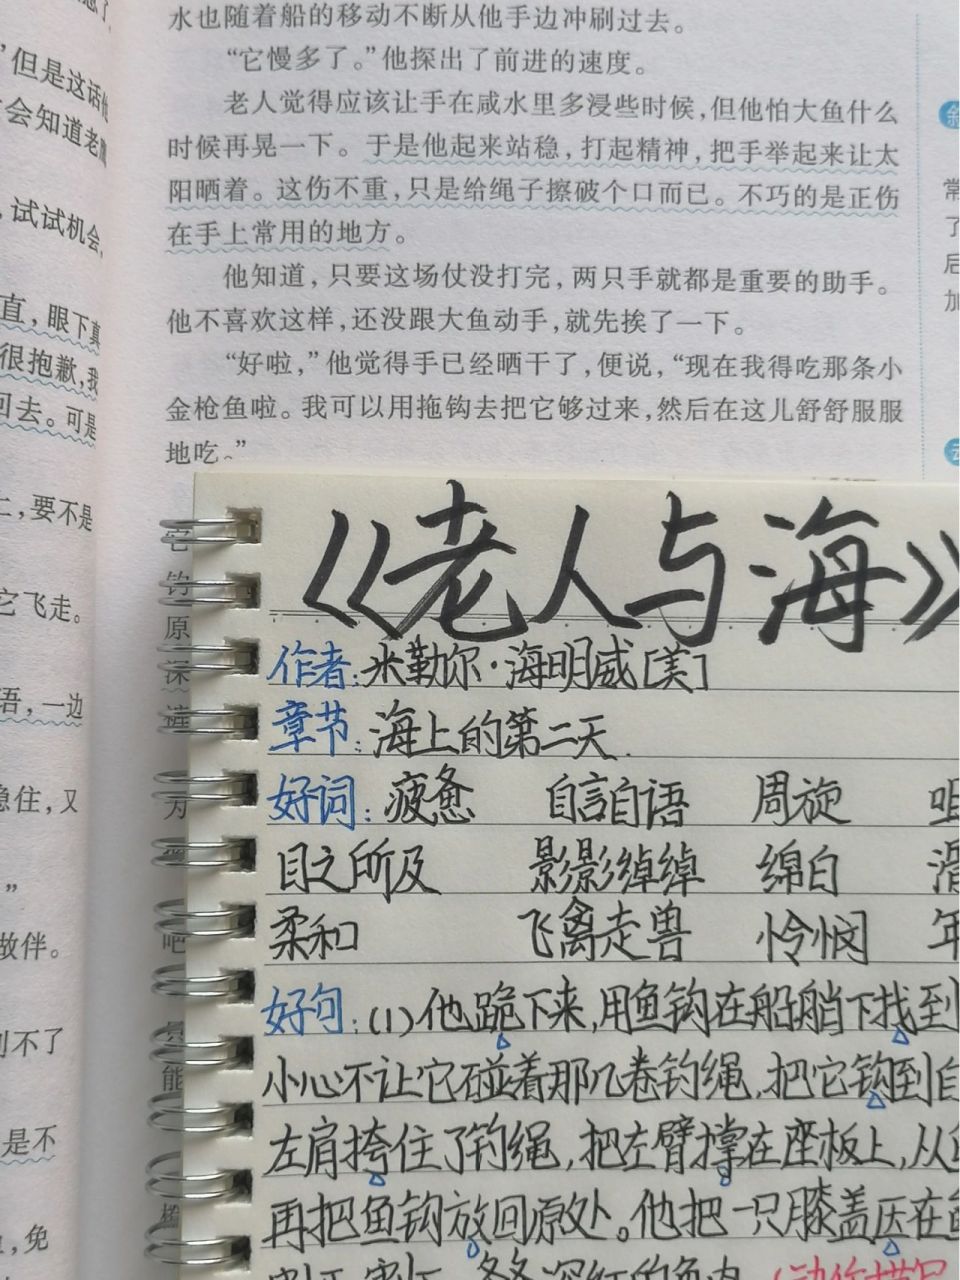 水也随着船的移动不断从他手边冲刷过去。
“它慢多了。”他探出了前进的速度。
老人觉得应该让手在咸水里多浸些时候,但他怕大鱼什么
时候再晃一下。于是他起来站稳,打起精神,把手举起来让太
阳晒着。这伤不重,只是给绳子擦破个口而已。不巧的是正伤
在手上常用的地方。
他知道,只要这场仗没打完,两只手就都是重要的助手。
他不喜欢这样,还没跟大鱼动手,就先挨了一下。
“好啦,”他觉得手已经晒干了,便说,“现在我得吃那条小
金枪鱼啦。我可以用拖钩去把它够过来,然后在这儿舒舒服服
地吃。”
”但是这话他
会知道老
,试试机会,
直,眼下真
很抱歉,我
回去。可是
二,要不是
它飞走。
语,一边
稳住,又
”
做伴。
到不了
是不
,免
常
了
后
加
钓
原
深
能
《老人与海》
作者:米勒尔·海明威[美]
章节:海上的第二天.
好词:疲惫 自言自语 周旋 咀
目之所及 影影绰绰 绵白 滑
柔和 飞禽走兽 怜悯 年
好句:(1)他跪下来,用鱼钩在船艄下找到
小心不让它碰着那几卷钓绳,把它钩到自
左肩挎住了钓绳,把左臂撑在座板上,从
再把鱼钩放回原处。他把一只膝盖压在
深红的鱼肉
(动作描写